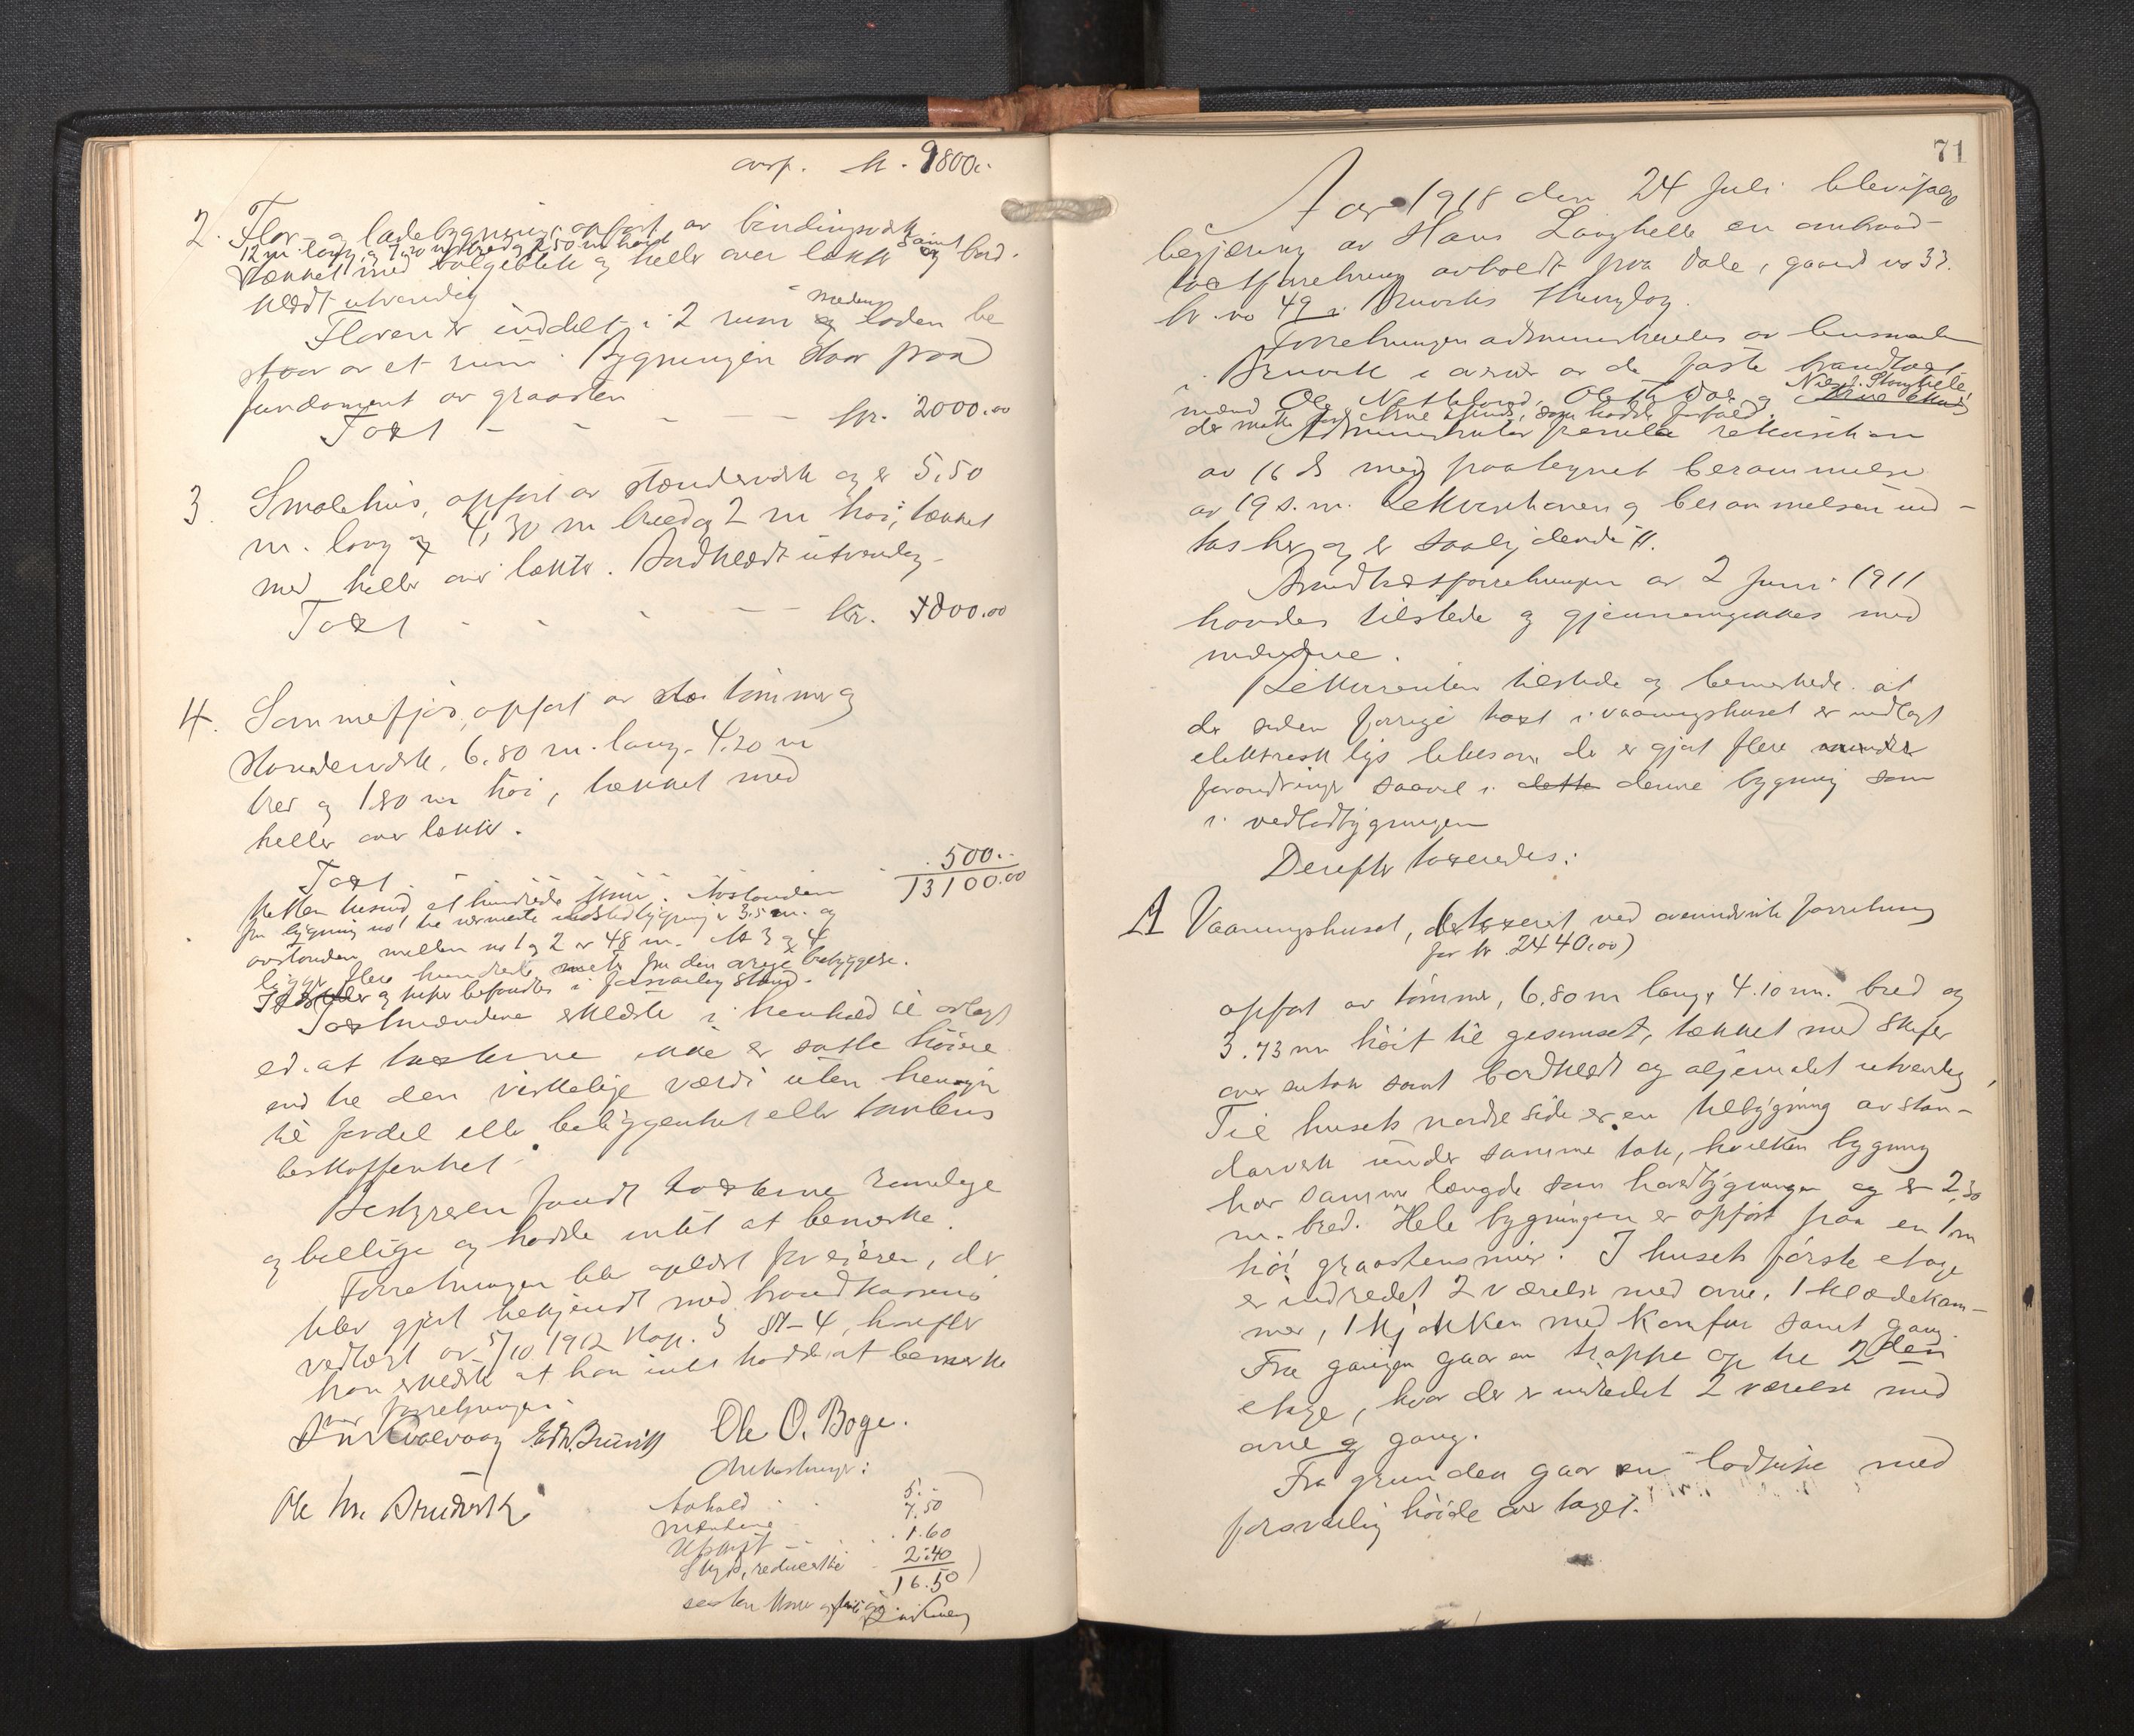 ovrf. kr. 9800.-
2. Flor- og ladebygning, opført av bindingsverk
12 m. lang, 7,20 m bred og 2,50 m høi samt
tækket med bølgeblik og heller over lækter og bord-
klædt utvendig
Floren er inddelt i 2 rum og medens laden be
staar av et rum. Bygningen staar paa
fundament av graasten
Taxt - - - - kr. 2000.00
3. Smalehus, opført av stænderverk og er 5,50
m. lang og 4,30 m bred og 2 m høi, tækket
med heller over lækter. Bordklædt utvendig.
Taxt - - - - kr. 800.00
4. Sommerfjøs, opført av tømmer og
stænderverk, 6,80 m. lang, 4,20 m
bred og 1.80 m høi, tækket med
heller over lækter.
Taxt 500.-
13100.00
Tretten tusind et hundrede kroner. Avstanden
fra bygning no 1 til nærmeste ildstedbygning er 35 m. og
avstanden mellem no 1 og 2 er 48 m. No 3 og 4
ligger flere hundrede meter fra den øvrige bebyggelse.
Ildsteder og piper befandtes i forsvarlig stand.
Taxtmændene erklærte i henhold til avlagt
ed at taxterne ikke er satte høiere
end til den virkelige værdi uten hensyn
til fordel eller beliggenhet eller tomtens
beskaffenhet.
Bestyreren fandt taxterne rimelige
og billige og hadde intet at bemerke.
Forretningen blev oplæst for eieren, der
blev gjort bekjendt med brandkassens
vedtægt av 5/10 1912 Kap. 3 § 1-4, hvorefter
han erklærte at han intet hadde at bemerke
ved forretningen.
Edw. Bruvik Ole O. Boge.
Omkostninger:
Ole M. Bruvik
Avhold . . 5.-
Mændene 7.50
Utskrift - . . . 1.60
Skyds, reducerte . 2.40
16.50
71
Aar 1918 den 24 Juli blev ifølge
begjæring av Hans Langhelle en ombrand-
taxtforretning avholdt paa Dale, gaards no 33
br. no 49 i Bruviks thinglag.
Forretningen administreredes av lensmanden
i Bruvik i overvær av de faste brandtaxt-
mænd Ole Nettelund, Ole Dale og Arne Nils J. Stanghelle,
der møtte for Arne , som hadde forfald.
Administrator fremla rekvisition
av 16 ds med paategnet berammelse
av 19 s. m. Rekvisitionen og berammelsen ind-
tas her og er saalydende #.
Brandtaxtforretningen av 2 Juni 1911
havdes tilstede og gjennemgikkes med
mændene.
Rekvirenten tilstede og bemerkede at
der siden forrige taxt i vaaningshuset er indlagt
elektrisk lys likesom der er gjort flere mindre
forandringer saavel i dette denne bygning som
i vedladbygningen
Derefter taxeredes:
A Vaaningshuset, (taxeret ved omnævnte forretning
for kr 2440,00)
opført av tømmer, 6.80 m lang, 4.10 m. bred og
3.73 m høit til gesimset, tækket med skifer
over sutak samt bordklædt og oljemalet utvendig.
Til husets nordre side er en tilbygning av stæn-
darverk under samme tak, hvilken bygning
har samme længde som hovedbygningen og er 2,30
m. bred. Hele bygningen er opført paa en 1 m
høi graastensmur. I husets første etage
er indredet 2 værelser med ovne, 1 klædekam-
mer, 1 kjøkken med komfur samt gang.
Fra gangen gaar en trappe op til 2den
etage, hvor der er indredet 2 værelser med
ovne og gang.
Fra grunden gaar en lodpipe med
forsvarlig høide over taget.